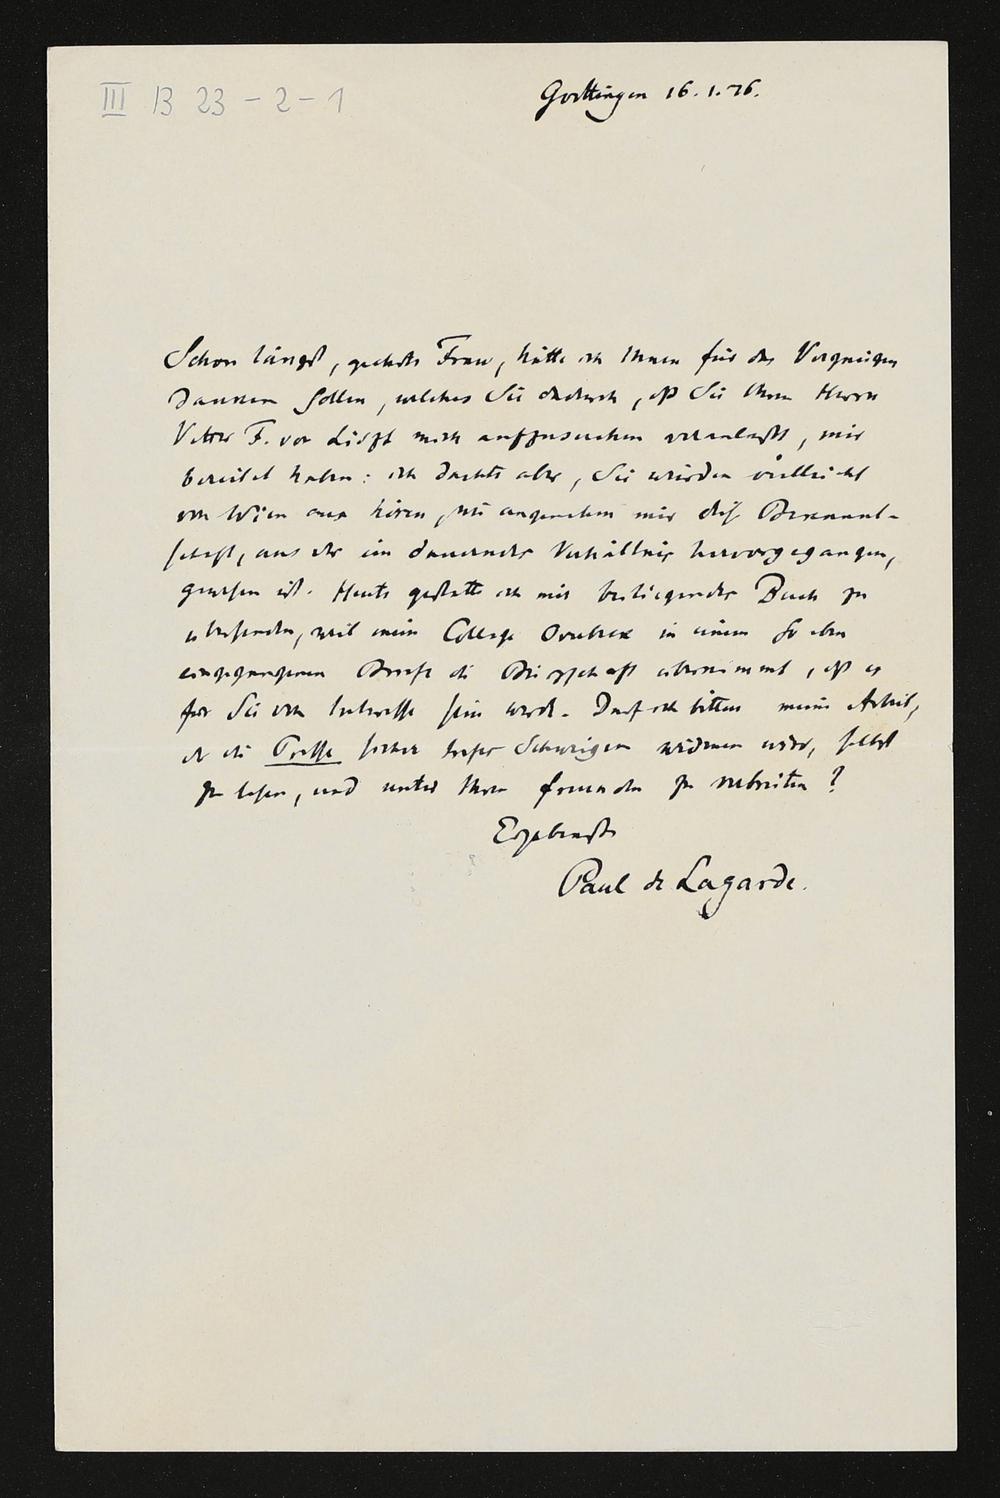 III B 23 - 2 - 1
Goettingen 16. 1. 76.
Schon längst, geehrte Frau, hätte ich Ihnen für das Vergnügen
danken sollen, welches Sie dadurch, daß Sie Ihren Herrn
Vetter F. von Liszt mich aufzusuchen veranlaßt, mir
bereitet haben: ich dachte aber, Sie würden vielleicht
von Wien aus hören, wie angenehm mir diese Bekannt-
schaft, aus der ein dauerndes Verhältnis hervorgegangen,
gewesen ist. Heute gestatte ich mir beiliegendes Buch zu
übersenden, weil mein College Overbeck in einem so eben
eingegangenen Briefe die Bürgschaft übernimmt, daß es
für Sie von Interesse sein werde. Darf ich bitten meine Arbeit,
der die Presse sicher tiefes Schweigen widmen wird, selbst
zu lesen, und unter Ihren Freunden zu verbreiten?
Ergebenst
Paul de Lagarde.